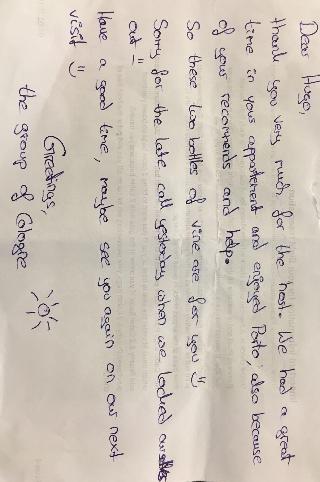 Dear Hugo,
thank you very much for the host. We had a great
time in your appartement and enjoyed Porto, also because
of your recomends and help.
So these two bottles of vine are for you :)
Sorry for the late call yesterday when we locked ourselves
out :)
Have a good time, maybe see you again on our next
visit :)
Greetings,
the group of Cologne